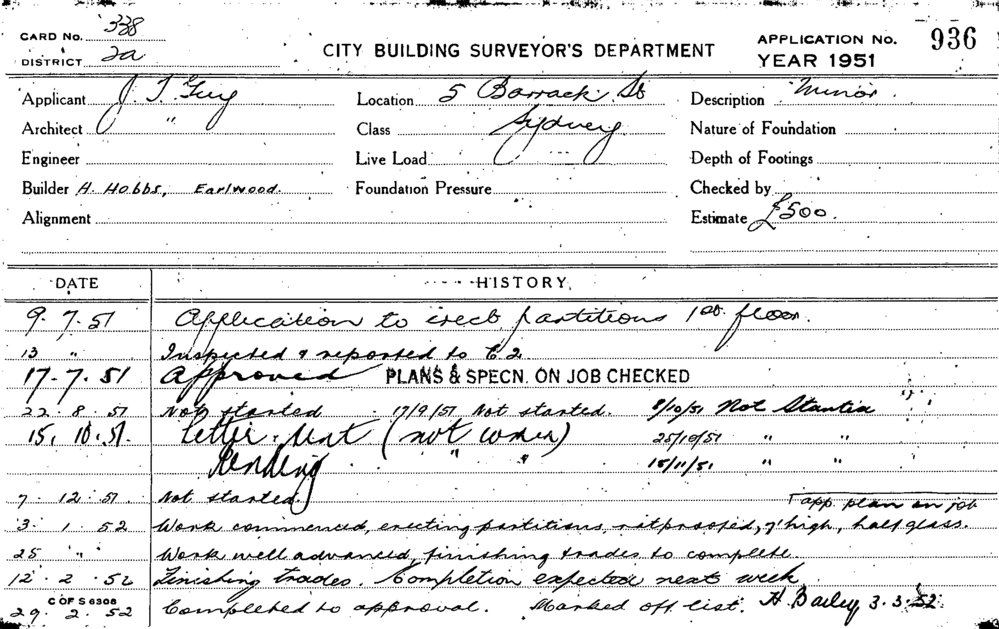 CARD No. 338
DISTRICT 2a
CITY BUILDING SURVEYOR'S DEPARTMENT
APPLICATION No. 936
YEAR 1951
Applicant J. T. Guy Location 5 Barrack St Description Minor
Architect " Class Sydney Nature of Foundation
Engineer Live Load Depth of Footings
Builder H. Hobbs, Earlwood. Foundation Pressure Checked by
Alignment Estimate £500.
DATE HISTORY
9.7.51 Application to erect partitions 1st floor.
13 " Inspected & reported to C2
17.7.51 Approved PLANS & SPECN. ON JOB CHECKED
22.8.51 Not started 17/9/51 Not started. 8/10/51 Not Started
15.10.51 Letter sent (not comm) 25/10/51 " "
Pending " " 15/11/51 " "
7.12.51 Not started. app. plan on job
3.1.52 Work commenced, erecting partitions, ratproofed, 7' high, half glass.
25 " " Work well advanced, finishing trades to complete
12.2.52 Finishing trades. Completion expected next week
C OF S 6308
29.2.52 Completed to approval. Marked off list. H. Bailey 3.3.52